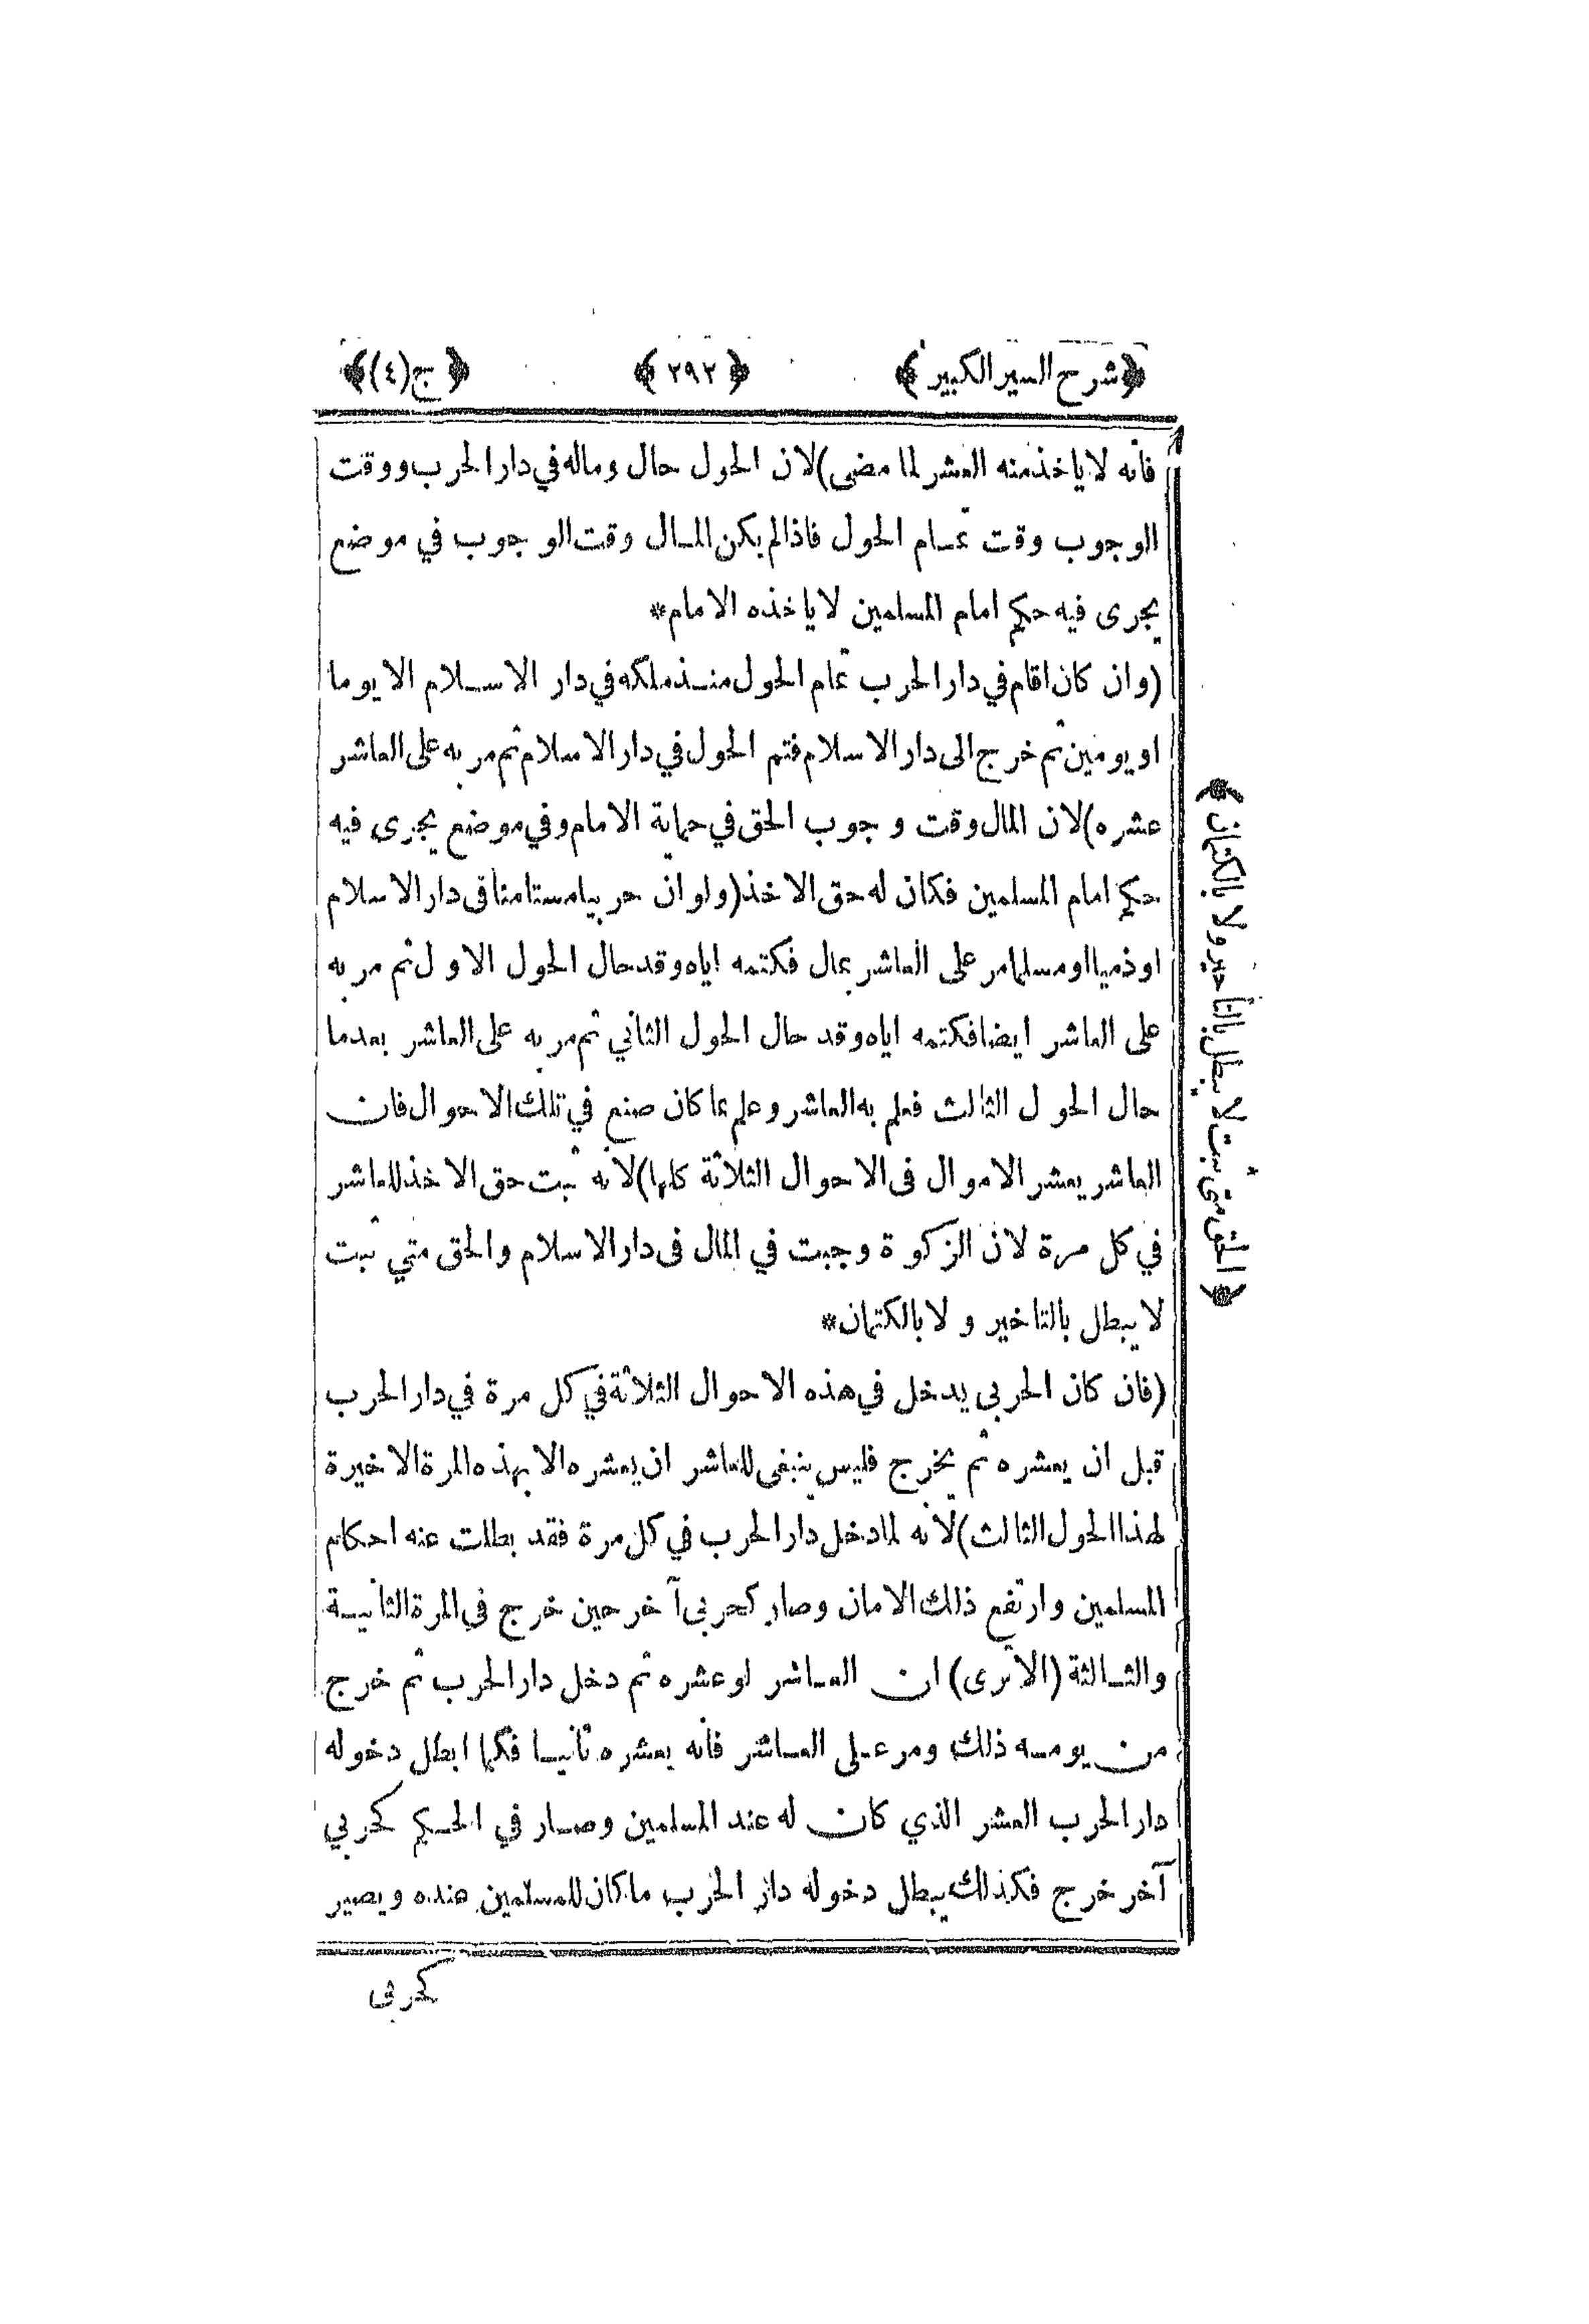 ﴿شرح السير الكبير﴾ ﴿٢٩٢﴾ ﴿ج(٤)﴾
فانه لا ياخذ منه العشر لما مضى) لان الحول حال وماله في دار الحرب ووقت
الوجوب وقت تمام الحول فاذا لم يكن المال وقت الوجوب في موضع
يجرى فيه حكم امام المسلمين لا ياخذه الامام*
(وان كان اقام في دار الحرب تمام الحول منذ ملكه في دار الاسلام الا يوما
او يومين ثم خرج الى دار الاسلام فتم الحول في دار الاسلام ثم مر به على العاشر
عشره) لان المال وقت وجوب الحق في حماية الامام وفي موضع يجرى فيه
حكم امام المسلمين فكان له حق الاخذ (ولو ان حربيا مستامنا فى دار الاسلام
او ذميا او مسلما مر على العاشر بمال فكتمه اياه وقد حال الحول الاول ثم مر به
على العاشر ايضا فكتمه اياه وقد حال الحول الثاني ثم مر به على العاشر بعدما
حال الحول الثالث فعلم به العاشر وعلم بما كان صنع في تلك الاحوال فان
العاشر يعشر الاموال فى الاحوال الثلاثة كلها) لانه ثبت حق الاخذ للعاشر
في كل مرة لان الزكوة وجبت في المال فى دار الاسلام والحق متي ثبت
لا يبطل بالتاخير و لا بالكتمان*
(فان كان الحربى يدخل في هذه الاحوال الثلاثة في كل مرة في دار الحرب
قبل ان يعشره ثم يخرج فليس ينبغى للعاشر ان يعشره الا بهذه المرة الاخيرة
لهذا الحول الثالث) لانه لما دخل دار الحرب في كل مرة فقد بطلت عنه احكام
المسلمين وارتفع ذلك الامان وصار كحربى آخر حين خرج في المرة الثانية
والثالثة (الا ترى) ان العاشر لو عشره ثم دخل دار الحرب ثم خرج
من يومه ذلك ومر على العاشر فانه يعشره ثانيا فكما ابطل دخوله
دار الحرب العشر الذي كان له عند المسلمين وصار في الحكم كحربي
آخر خرج فكذلك يبطل دخوله دار الحرب ما كان للمسلمين عنده ويصير
كحربى
﴿الحق متى ثبت لا يبطل بالتأخير ولا بالكتمان﴾